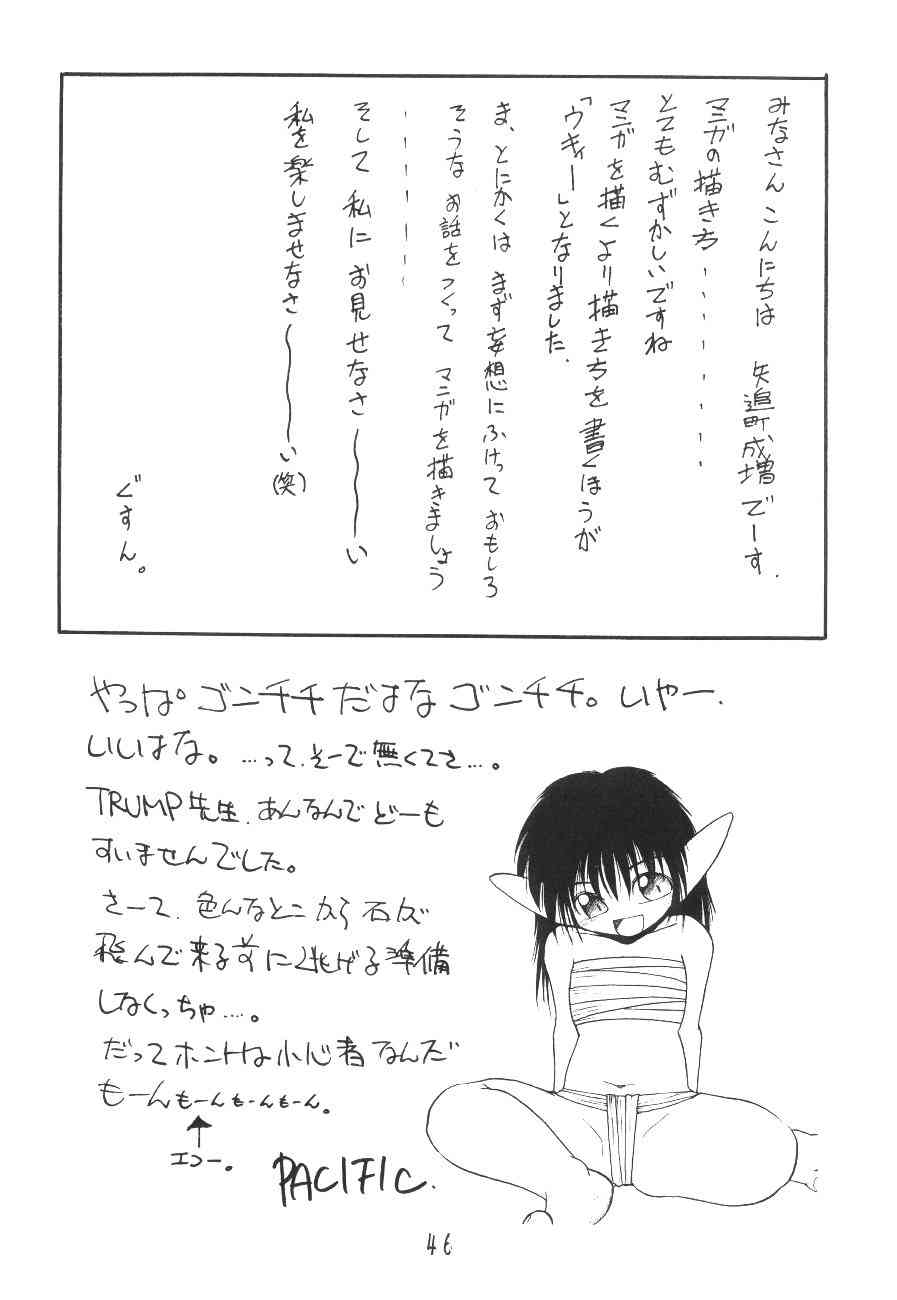 みなさん こんにちは 矢追町成増でーす.
マニガの描き方、、、、、、、、
とてもむずかしいですね
マニガを描くより描き方を書くほうが
「ウキィー」となりました.
ま、とにかくは まず妄想にふけって おもしろ
そうな お話をつくって マニガを描きましょう
、、、、、、、
そして 私に お見せなさ〜〜い
私を楽しませなさ〜〜い(笑)
ぐすん。
やっぱ。ゴンチチだはな ゴンチチ。いやー.
いいはな。…って、そーで無くてさ…。
TRUMP先生、あんなんで どーも
すいませんでした。
さーて、色んなとこから石が
飛んで来る前に逃げる準備
しなくっちゃ…。
だってホントは小心者なんだ
もーんもーんもーんもーん。
↑
エコー。
PACIFIC.
46